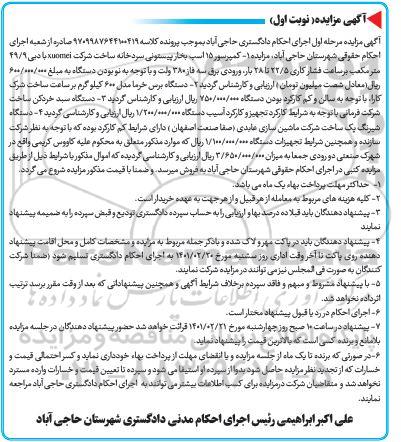 آگهی مزایده( نوبت اول)
آگهی مزایده مرحله اول اجرای احکام دادگستری حاجی آباد بموجب پرونده کلاسه ۹۷۰۹۹۸۷۶۴۴۱۰۰۴۱۹ صادره از شعبه اجرای
احکام حقوقی شهرستان حاجی آباد، مزایده ۱- کمپرسور ۱۵ اسب بخار پیستونی سردخانه ساخت شرکت xuomei با دبی ۴۹/۹
متر مکعب بر ساعت فشار کاری ۲۲/۵ تا ۲۸ بار، ورودی برق سه فاز ۳۸۰ ولت و با توجه به نو بودن دستگاه به مبلغ ۶۰۰/۰۰۰/۰۰۰
ریال(معادل شصت میلیون تومان ) ارزیابی و کارشناس گردید ۲- دستگاه برس خرما مدل ۶۰۰ کیلو گرم بر ساعت ساخت شرکت
کارا، با توجه به سالن و کم کارکرد بودن دستگاه ۷۵۰/۰۰۰/۰۰۰ ریال ارزیابی و کارشناس گردید ۳- دستگاه سبد خردکن ساخت
شرکت فرمانی با توجه به شرایط کارکرد تجهیز و کارکرد آسیب دستگاه ۱/۲۰۰/۰۰۰/۰۰۰ ریال ارزیابی و کارشناسی گردید ۴- دستگاه
شیرینگ پک ساخت شرکت ماشین سازی عابدی (صفا صنعت اصفهان ) دارای شرایط کم کارکرد بوده که با توجه به نظر شرکت
سازنده و همچنین شرایط تجهیزات دستگاه ۱/۱۰۰/۰۰۰/۰۰۰ ریال که موارد مذکور متعلق به محکوم علیه کاووس کریمی واقع در
شهرک صنعتی دو رودی جمعا به میزان ۳/۶۵۰/۰۰۰/۰۰۰ ریال ارزیابی و کارشناسی گردیده که اموال مذکور با شرایط ذیل از طریق
مزایده کتبی در اجرای احکام حقوقی شهرستان حاجی آباد به فروش میرسد. و ضمنا با قیمت مذکور مزایده شروع می گردد.
۱- حداکثر مهلت پرداخت بهاء یک ماه می باشد.
۲- کلیه هزینه های مربوط به معامله از هر قبیل و از هر جهت به عهده خریدار است.
۳- پیشنهاد دهندگان باید قبلا ده درصد بها و ارزیابی را به حساب سپرده دادگستری تودیع و قبض سپرده را به ضمیمه پیشنهاد
نمایند
۴- پیشنهاد دهندگان باید در پاکت مهر و لاک شده و با ذکر جمله مربوط به مزایده و مشخصات کامل و محل اقامت پیشنهاد
دهنده روی پاکت تا آخر وقت اداری روز سه شنبه مورخ ۱۴۰۱/۰۲/۲۰ به اجرای احکام دادگستری تسلیم شود (ضمنا شرکت
کنندگان به صورت فی المجلس نیز می توانند در مزایده شرکت نمایند.
۵- با پیشنهاد مشروط و مبهم و فاقد سپرده برخلاف شرایط آگهی و همچنین پیشنهاداتی که بعد از وقت مقرر برسد ترتیب
اثر داده نخواهد شد.
۶- اجرای احکام در رد یا قبول پیشنهاد مختار است.
۷- پیشنهاد در ساعت ۱۰ صبح روز چهارشنبه مورخ ۱۴۰۱/۰۲/۲۱ قرائت خواهد شد حضور پیشنهاد دهندگان در جلسه مزایده
بلامانع و برنده کسی است که بالاترین قیمت را پیشنهاد نماید
۶-در صورتی که برنده تا یک ماه از جلسه مزایده و یا انقضای مهلت از پرداخت بهاء خودداری نماید و کسر احتمالی قیمت و
خسارات که از تجدید نظر مزایده حاصل شود بدوا از سپرده او استیفا می شود و سپرده تا تعیین قیمت و خسارات وارده مسترد
نخواهد شد و متقاضیان شرکت در مزایده برای کسب اطلاعات بیشتر می توانند به اجرای احکام دادگستری حاجی آباد مراجعه
نمایند.
علی اکبر ابراهیمی رئیس اجرای احکام مدنی دادگستری شهرستان حاجی آباد